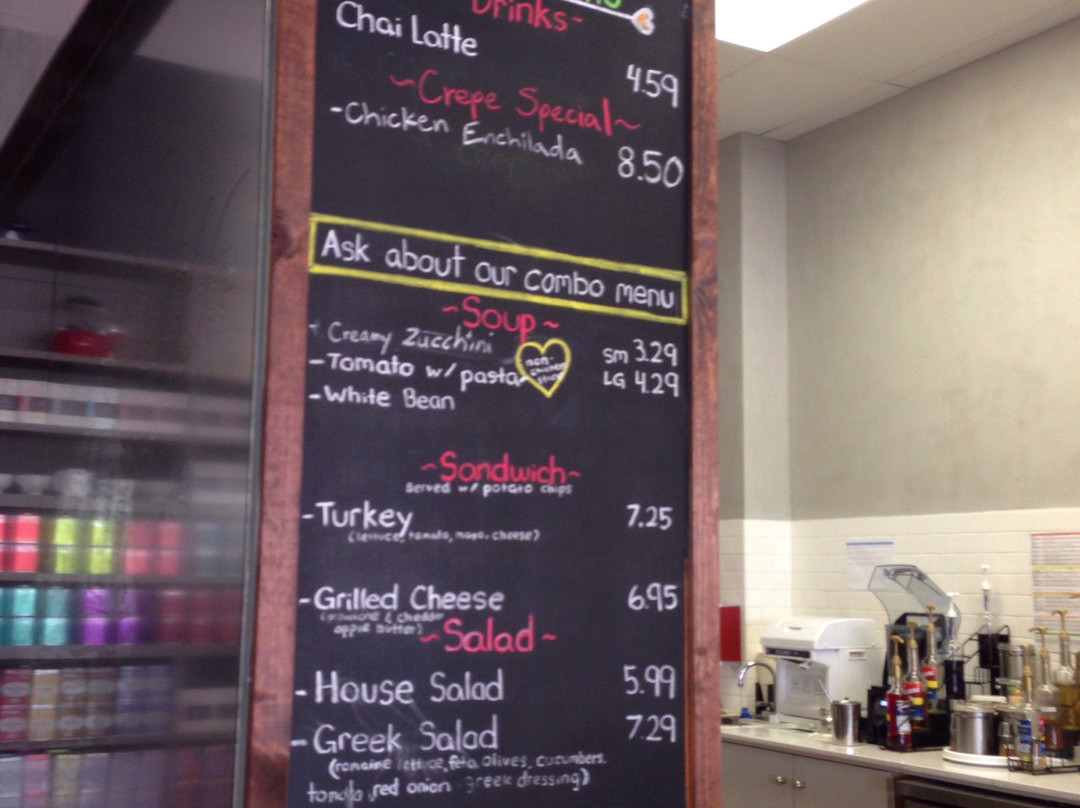 Drinks~
Chai Latte
4.59
~Crepe Special~
-Chicken Enchilada 8.50
Ask about our combo menu
~Soup~
- Creamy Zucchini sm 3.29
-Tomato w/ pasta LG 4.29
non-
chicken
stock
-White Bean
~Sandwich~
served w/ potato chips
-Turkey 7.25
(lettuce, tomato, mayo, cheese)
-Grilled Cheese 6.95
& cheddar
apple butter)
~Salad~
-House Salad 5.99
-Greek Salad 7.29
(romaine lettuce, feta, olives, cucumbers,
tomato, red onion greek dressing)